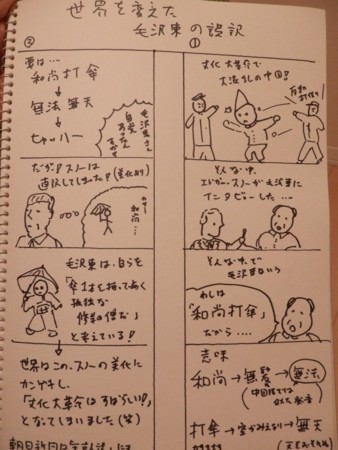 世界を変えた
毛沢東の誤訳
①
文化大革命で
大混乱の中国!
そんな中、
エドガー・スノーが毛沢東に
インタビューした…
そんな中で
毛沢東いわく
わしは
「和尚打傘」
だから….
意味
和尚→無髪→無法
打傘→空がみえない→無天
②
要は…
和尚打傘
↓
無法無天
↓
ヒャッハー
毛沢東さん
だが!スノーは
直訳してしまった!(美化あり)
和尚…
毛沢東は、自らを
「傘1本を持って歩く
孤独な
修行僧だ」
と考えている!
↓
世界はこの、スノーの美化に
カンゲキし、
「文化大革命はすばらしい!」
となってしまいました(笑)